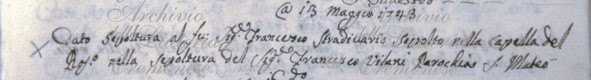 @ 13 Maggio 1743
Dato sepoltura al fu: Sig.r Francesco Stradivario sepolto nella Capella del
Ros.o nella sepoltura del Sig.r Francesco Vilani Parochia S. Mateo